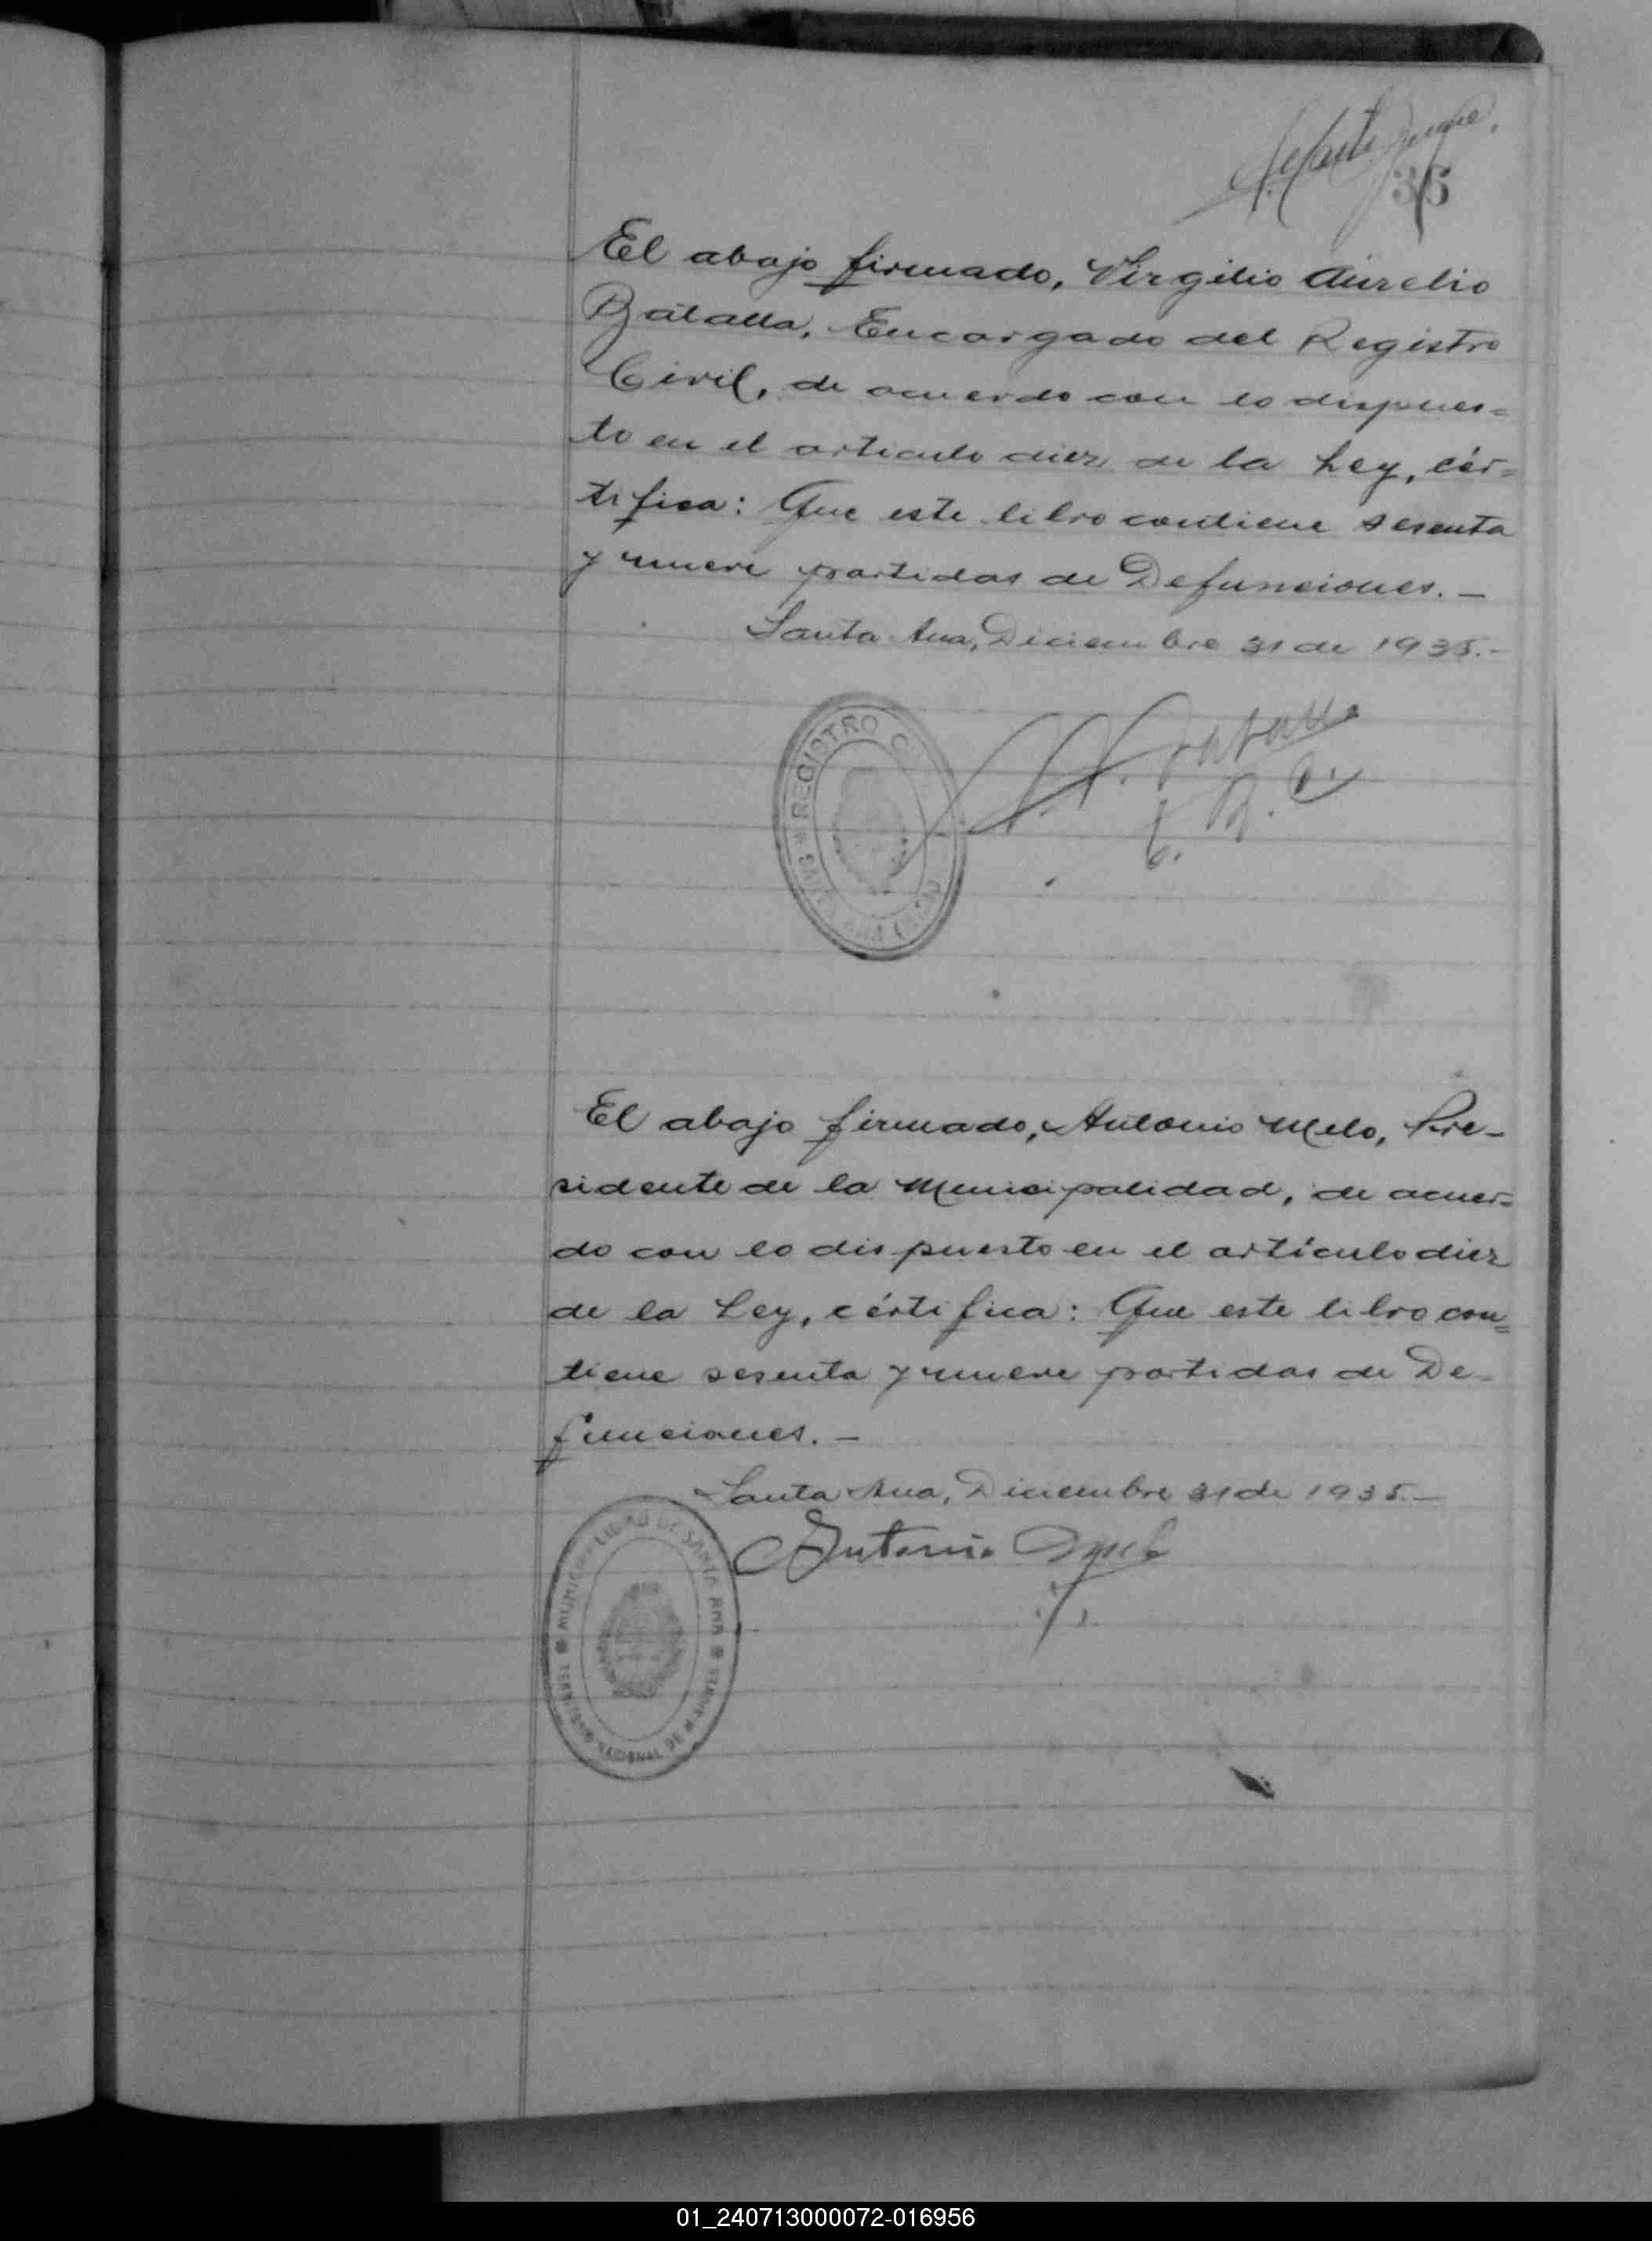 35
El abajo firmado, Virgilio Aurelio
Batalla, Encargado del Registro
Civil, de acuerdo con lo dispues=
to en el articulo diez de la Ley, cér=
tifica: Que este libro contiene sesenta
y nueve partidas de Defunciones. —
Santa Ana, Diciembre 31 de 1935.-
REGISTRO
SANTA ANA
V. A. Batalla
E. R. C.
El abajo firmado, Antonio Melo, Pre-
sidente de la Municipalidad, de acuer=
do con lo dispuesto en el artículo diez
de la Ley, cértifica: Que este libro con=
tiene sesenta y nueve partidas de De-
funciones. —
Santa Ana, Diciembre 31 de 1935.—
Antonio Melo
MUNICIPALIDAD DE SANTA ANA
TERRITORIO NACIONAL DE MISIONES
01_240713000072-016956